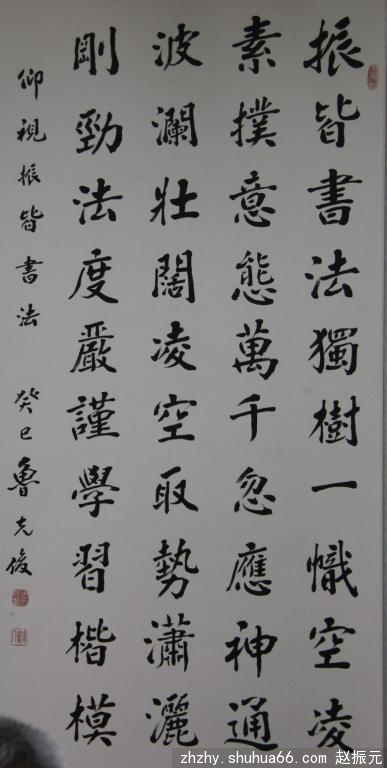 振皆書法獨樹一幟空凌
素撲意態萬千忽應神通
波瀾壯闊凌空取勢瀟灑
剛勁法度嚴謹學習楷模
仰視振皆書法 癸巳魯克俊
zhzhy.shuhua66.com 赵振元